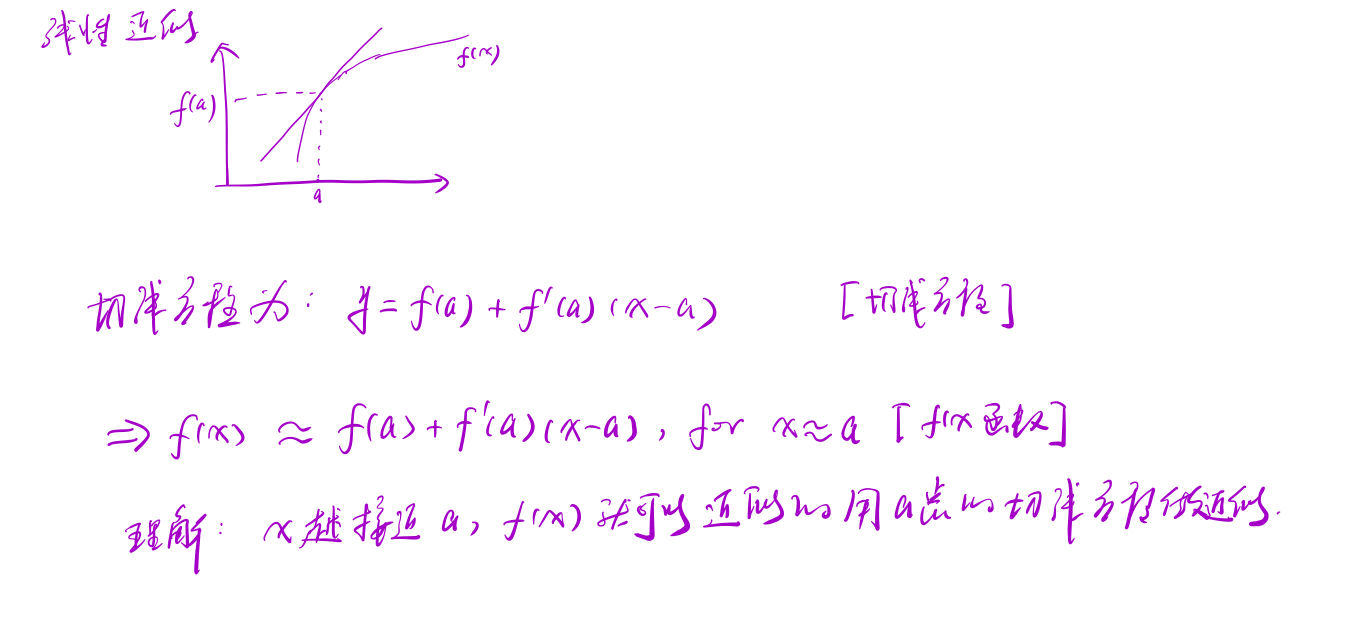 线性近似
f(x)
f(a)
a
切线方程为: y = f(a) + f'(a) (x-a) [切线方程]
⇒ f(x) ≈ f(a) + f'(a) (x-a), for x≈a [f(x 函数]
理解: x越接近 a, f(x) 就可以近似的用a点的切线方程做近似.